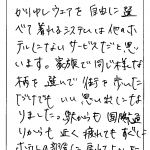 かりゆしウェアを自由に選
べて着れるシステムは他のホ
テルにないサービスだと思
います。家族で同じ様な
柄を選んで街を歩いた
だけでも いい思い出にな
りました。駅からも国際通
りからも近く疲れても すぐに
ホテルの部屋に戻ってこれた